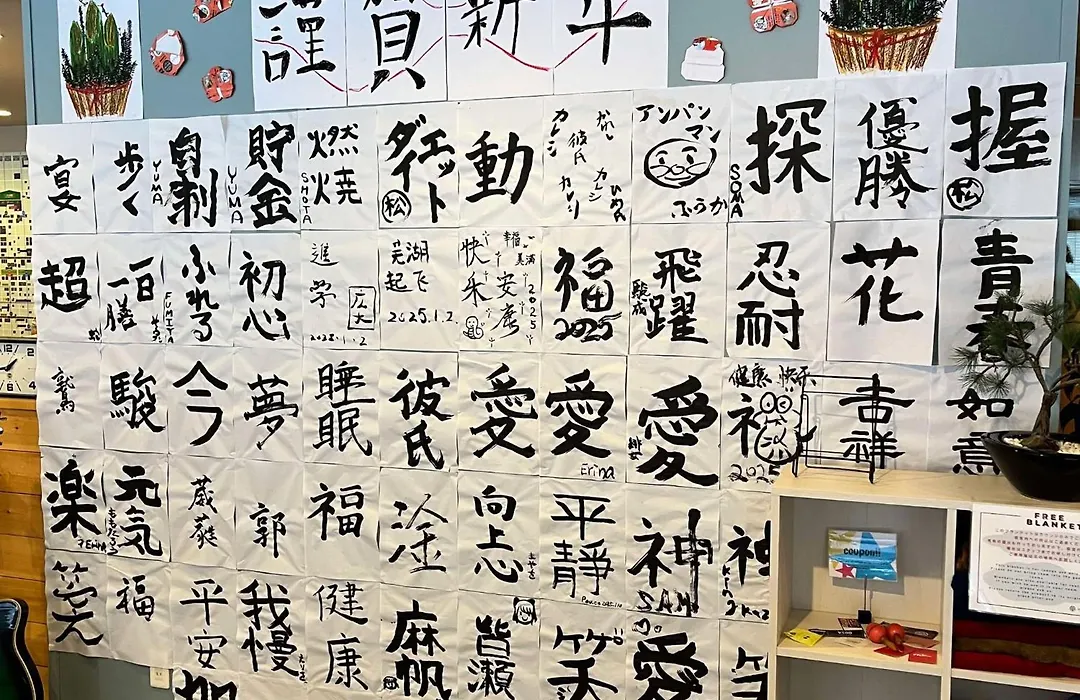 謹賀新年
宴
歩く
YUMA
自制
YUMA
貯金
SHOTA
燃焼
ダイエット
松
動
カレシ
彼氏
カレシ
アンパンマン
ふうか
SOMA
探
優勝
握
松
超
一日一膳
ふれる
FUMIYA
初心
進学
広大
2025.1.2
芜湖起飞
2025.1.2
快乐
幸福
美满
安康
2025
福
2025
飛躍
駿成
忍耐
花
青春
鷲
駿
今
夢
睡眠
彼氏
愛
愛
Erina
愛
健康 快乐
2025
吉祥
如意
楽
元気
葳蕤
郭
福
淦
向上心
平静
Peace
神
SAM
福
平安
我慢
健康
麻帆
皆瀬
愛
coupon!!
FREE
BLANKET